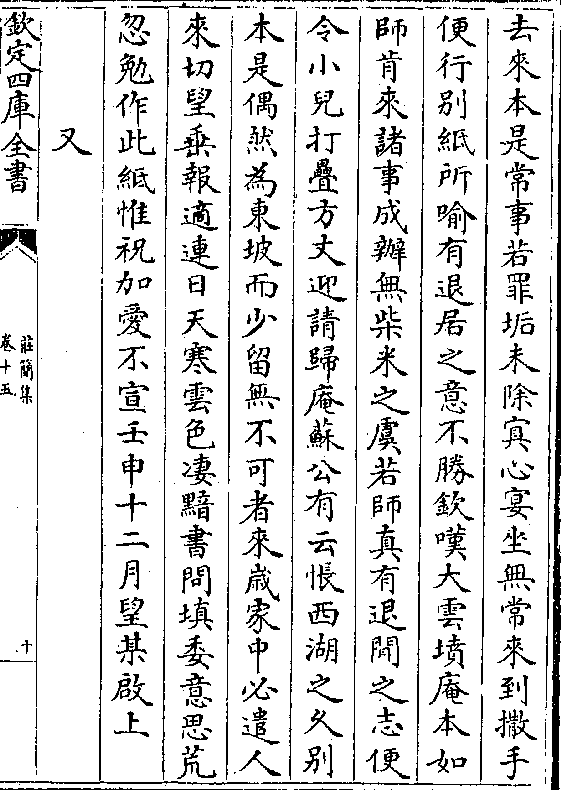 去來本是常事若罪垢未除寘心宴坐無常來到撒手
便行别紙所喻有退居之意不勝欽嘆大雲墳庵本如
師肯來諸事成辦無柴米之虞若師真有退閒之志便
令小兒打疊方丈迎請歸庵蘇公有云悵西湖之久别
本是偶然為東坡而少留無不可者來歳家中必遣人
來切望垂報適連日天寒雲色凄黯書問填委意思荒
忽勉作此紙惟祝加愛不宣壬申十二月望某啟上
又
欽定四庫全書
莊簡集
卷十五
十